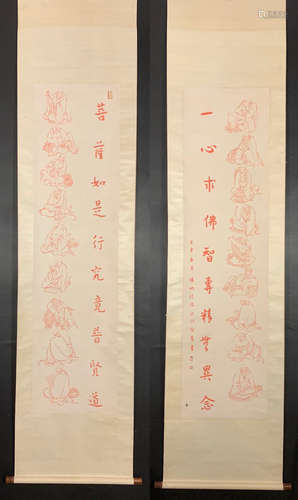 一心求佛智專精無異念
菩薩如是行究竟普賢道